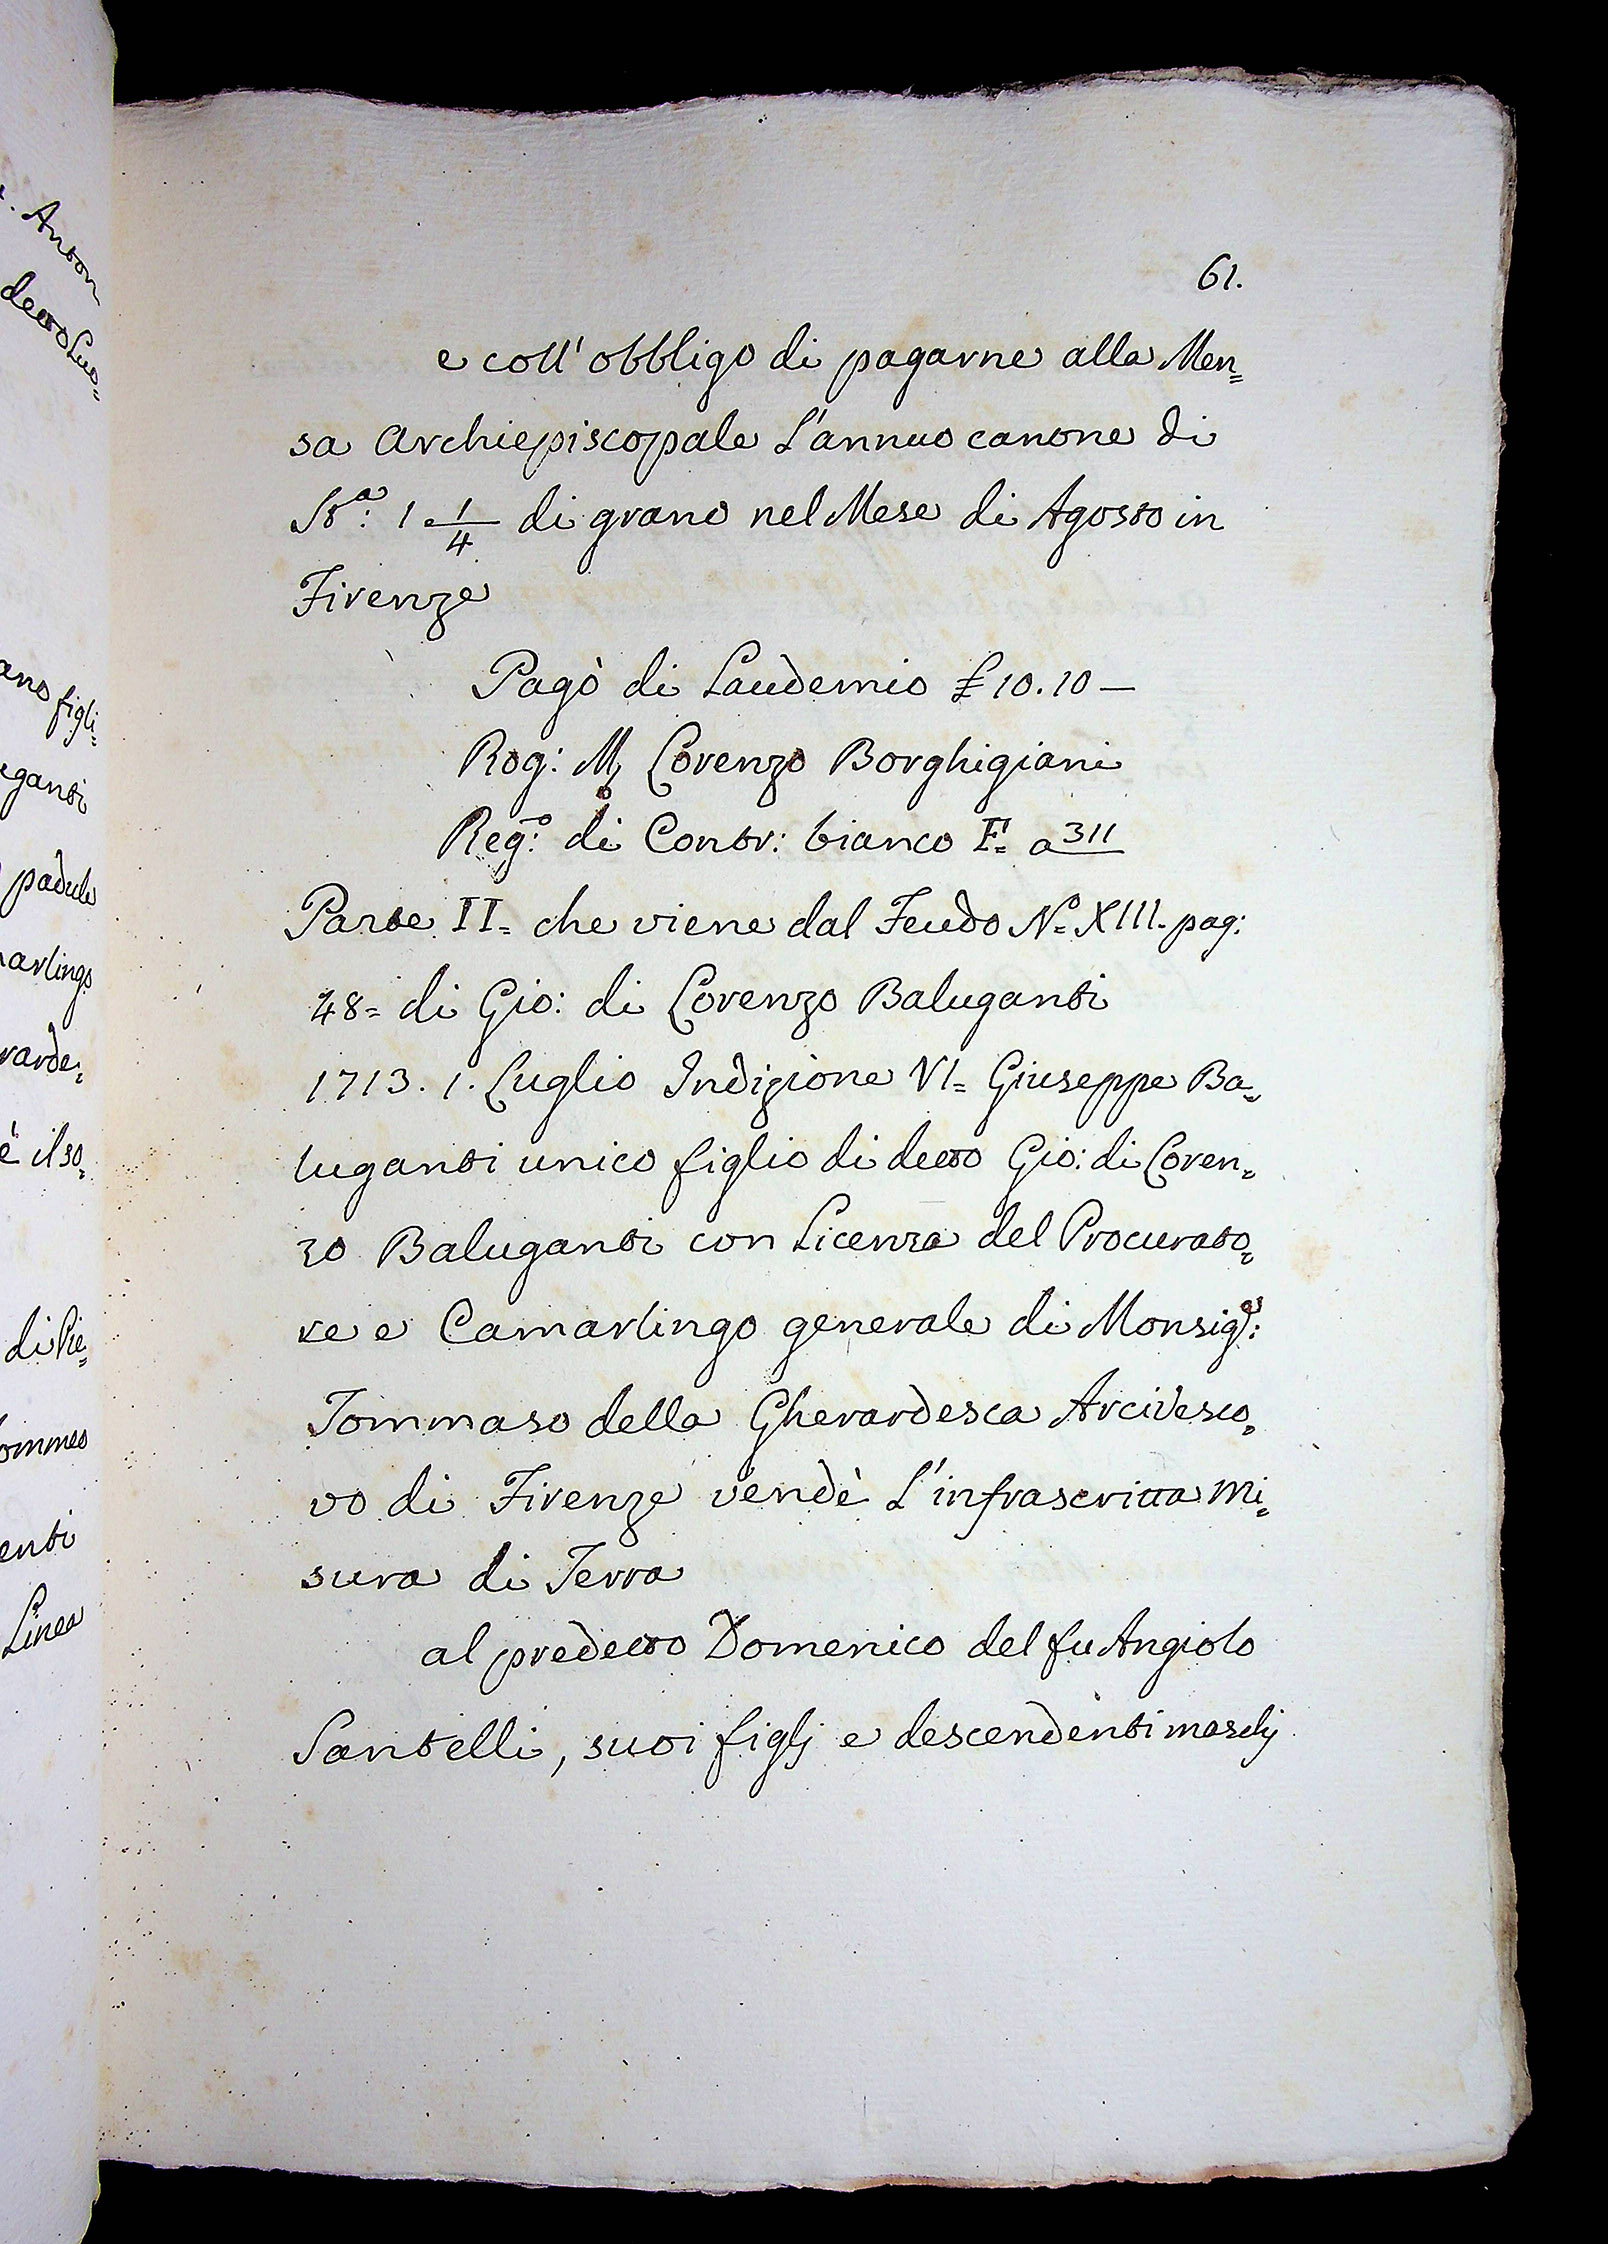 61.
e coll' obbligo di pagarne alla Men=
sa Archiepiscopale l'annuo canone di
Sta: 1 1/4 di grano nel Mese di Agosto in
Firenze
Pagò di Laudemio £ 10.10 —
Rog: M Lorenzo Borghigiani
Rego: di Contr: bianco F= a 311
Parte II= che viene dal Feudo No= XIII. pag:
48= di Gio: di Lorenzo Baluganti
1713. 1. Luglio Indizione VI= Giuseppe Ba=
luganti unico figlio di detto Gio: di Loren=
zo Baluganti con licenza del Procurato=
re e Camarlingo generale di Monsigr:
Tommaso della Gherardesca Arcivesco=
vo di Firenze vendè l'infrascritta mi=
sura di Terra
al predetto Domenico del fu Angiolo
Santelli, suoi figlj e descendenti maschj
Anton
detto Luo=
ano figli=
eganti
padule
arlingo
rarde=
è il so=
di Pie=
ommeo
enti
Linea